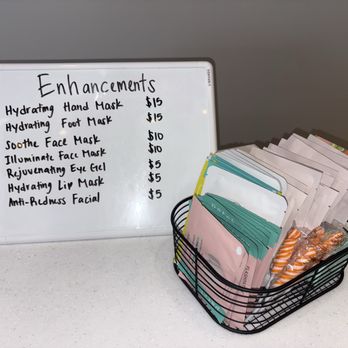 Enhancements
Hydrating Hand Mask $15
Hydrating Foot Mask $15
Soothe Face Mask $10
Illuminate Face Mask $10
Rejuvenating Eye Gel $5
Hydrating Lip Mask $5
Anti-Redness Facial $5